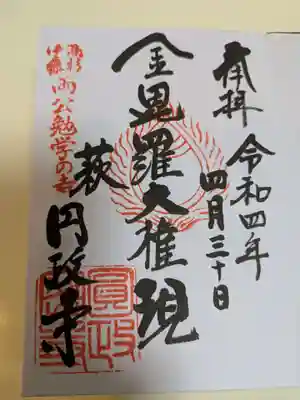 奉拝
令和四年
四月三十日
金毘羅大権現
萩 円政寺
高杉
伊藤
両公勉学の寺
圓政寺